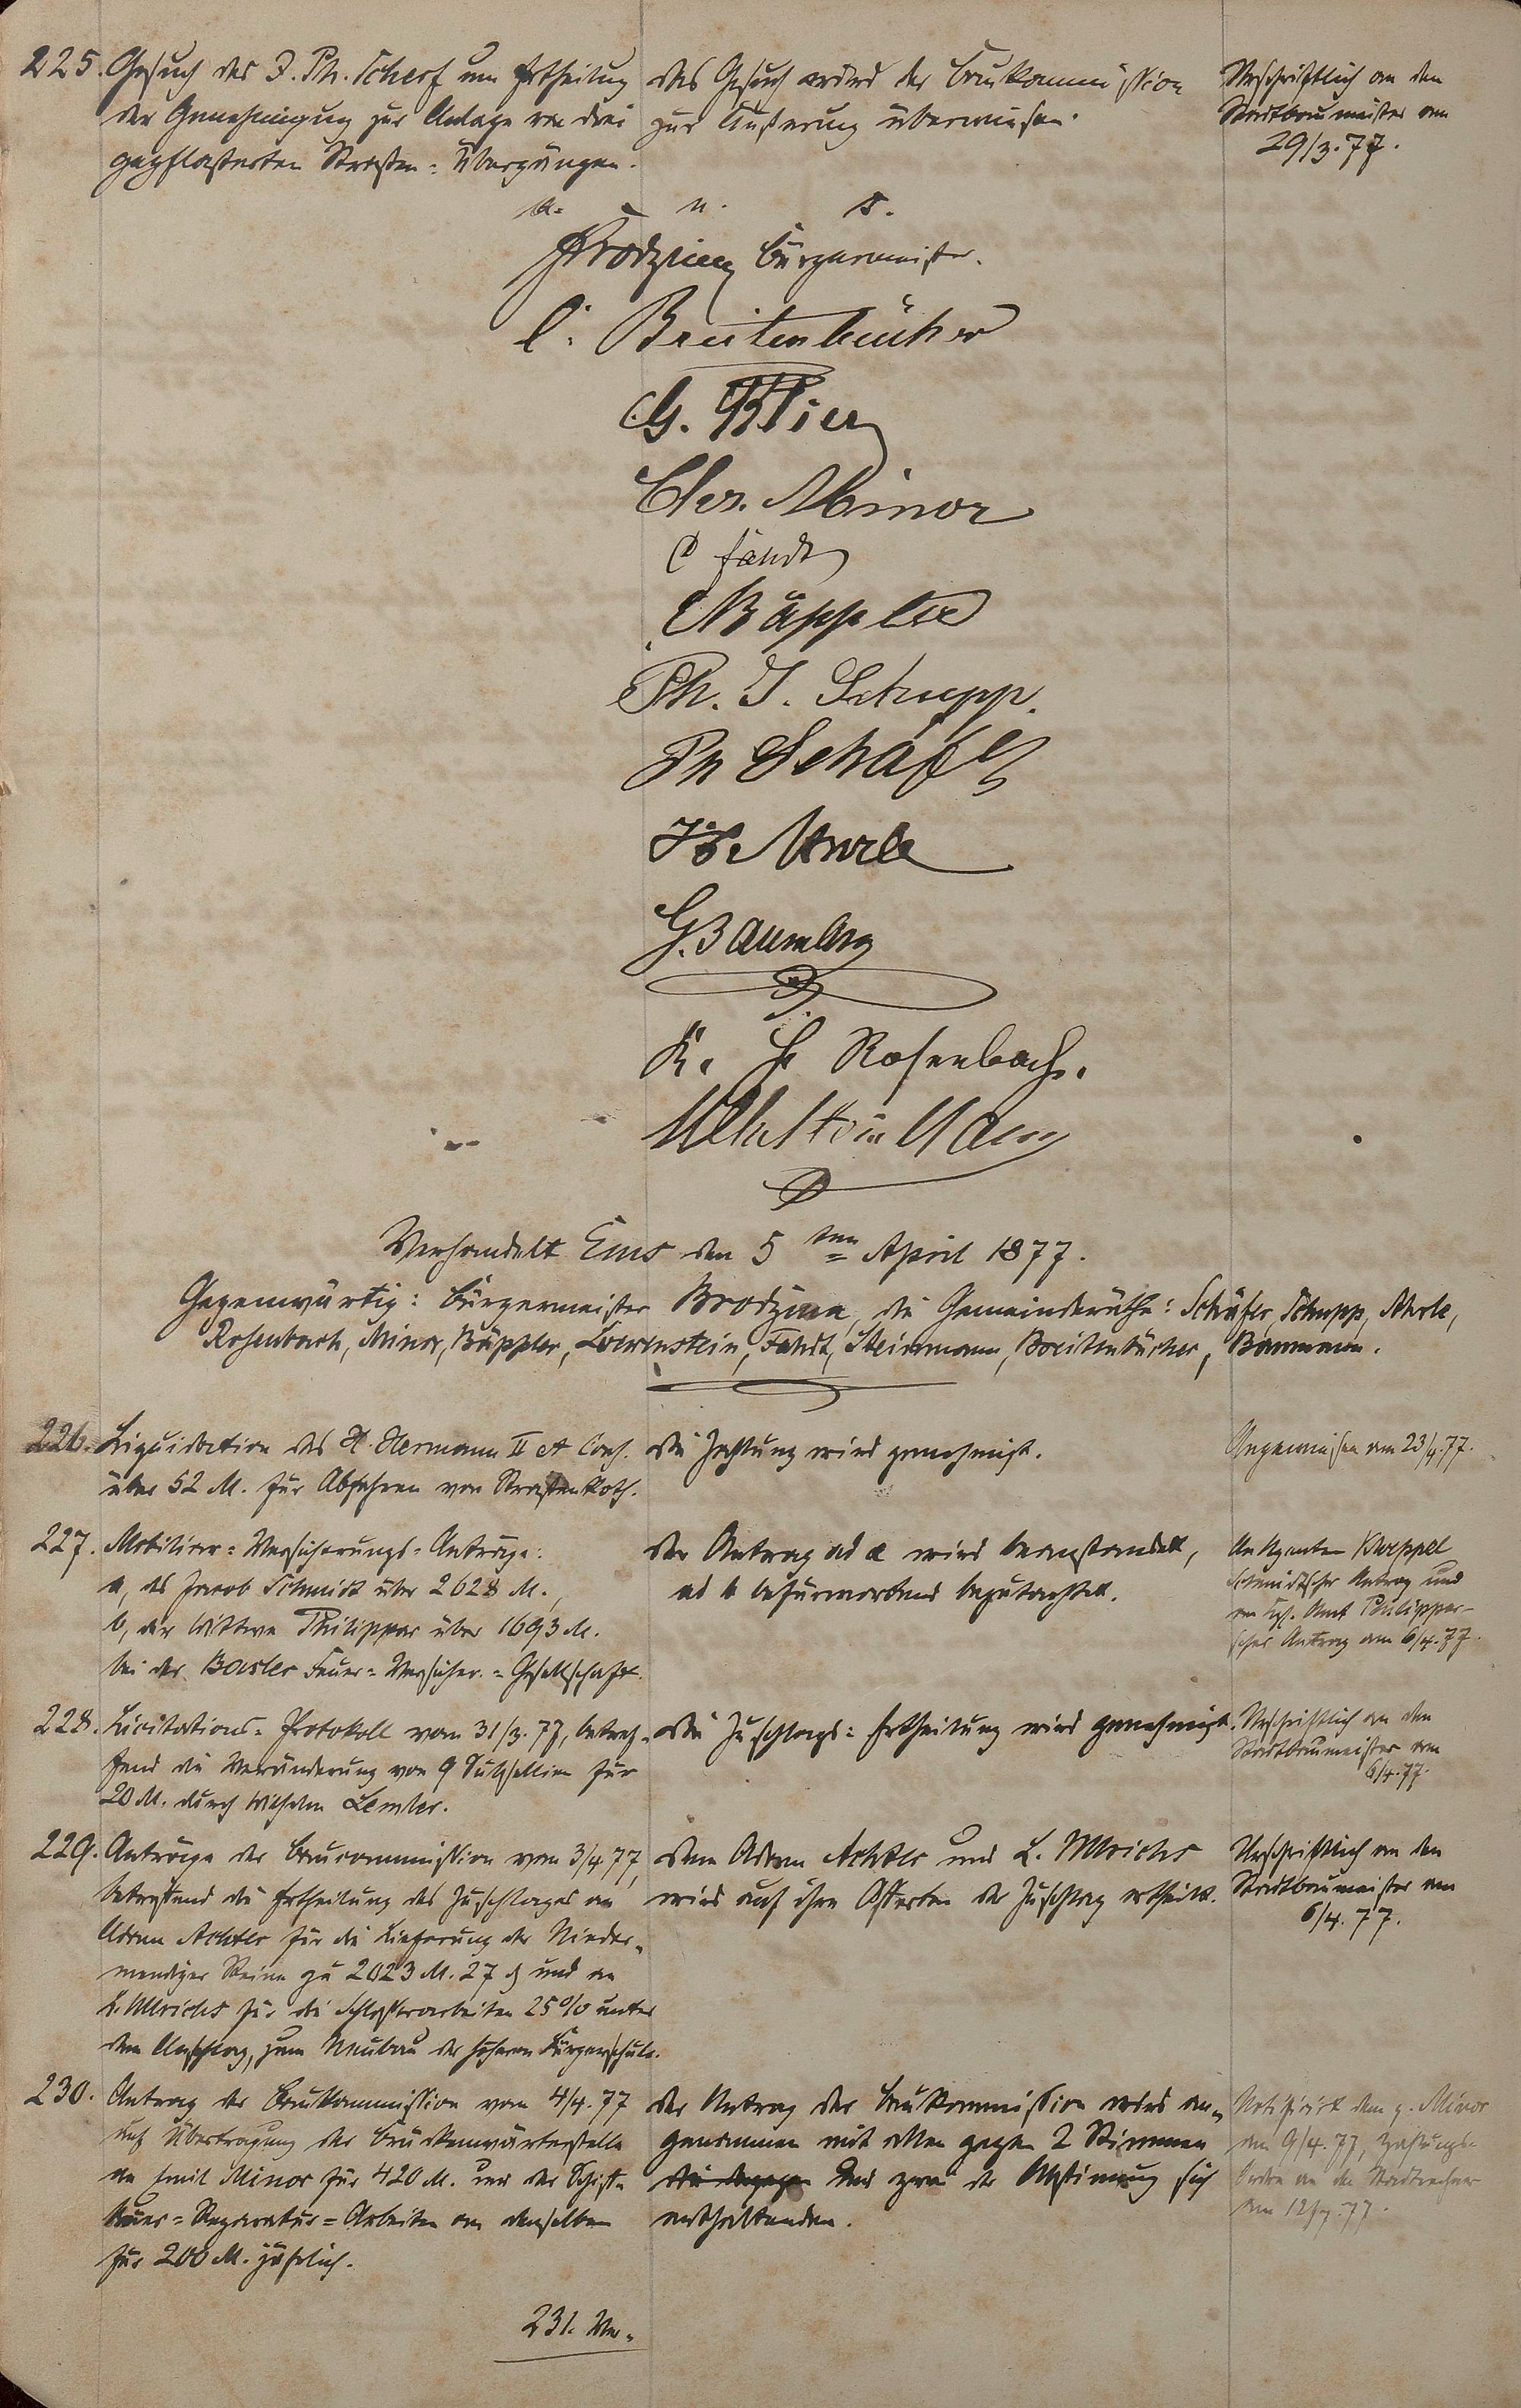 225. Gesuch des J. Ph. Scherf um Ertheilung
der Genehmigung zur Anlage von drei
gepflasterten Straßen-Übergängen.
Das Gesuch wird der Baukommission
zur Äußerung überwiesen.
Urschriftlich an den
Stadtbaumeister am
29/3. 77.
a. u. s.
Brodzina Bürgermeister.
C. Breitenbücher
G. Flier
Chr. Minor
C Fandt
Bäppler
Ph. J. Schupp.
Ph Schäfer
Merle
G. Bauman
K. H Rosenbach.
Verhandelt Ems den 5ten April 1877.
Gegenwärtig: Bürgermeister Brodzina, die Gemeinderäthe: Schäfer, Schupp, Merle,
Rosenbach, Minor, Bäppler, Loewenstein, Fandt, Steinmann, Breitenbücher, Baumann.
226. Liquidation des H. Hermann II et Cons.
über 52 M. für Abfahren von Straßenkoth.
Die Zahlung wird genehmigt.
Angewiesen am 23/4. 77.
227. Mobiliar-Versicherungs-Anträge:
a, des Jacob Schmidt über 2628 M.,
b, der Wittwe Philippar über 1693 M.
bei der Basler Feuer-Versicher.-Gesellschaft.
Der Antrag ad a wird beanstandet,
ad b befürwortend begutachtet.
An Agenten Kappel
Schmidtscher Antrag und
an Kgl. Amt Philippar-
scher Antrag am 6/4. 77.
228. Licitations-Protokoll vom 31/3. 77, betref-
fend die Veränderung von 9 Subsellien für
20 M. durch Wilhelm Lemler.
Die Zuschlags-Ertheilung wird genehmigt.
Urschriftlich an den
Stadtbaumeister am
6/4. 77.
229. Anträge der Baucommission vom 3/4 77,
betreffend die Ertheilung des Zuschlages an
Adam Achtler für die Lieferung der Nieder-
mendiger Steine zu 2023 M. 27 ₰ und an
L. Ullrichs für die Schlosserarbeiten 25% unter
dem Anschlag, zum Neubau der höheren Bürgerschule.
Dem Adam Achtler und L. Ullrichs
wird auf ihre Offerten der Zuschlag ertheilt.
Urschriftlich an den
Stadtbaumeister am
6/4. 77.
230. Antrag der Baukommission vom 4/4. 77
auf Übertragung der Brückenwärterstelle
an Emil Minor für 420 M. und der
Reparatur-Arbeiten an denselben
für 200 M. jährlich.
Der Antrag der Baukommission wird an-
genommen mit allen gegen 2 Stimmen
und zwei der Abstimmung sich
enthaltenden.
Notifizirt dem p. Minor
am 9/4. 77, Zahlungs-
Ordre an den Stadtrechner
am 12/7. 77.
231. Ver-